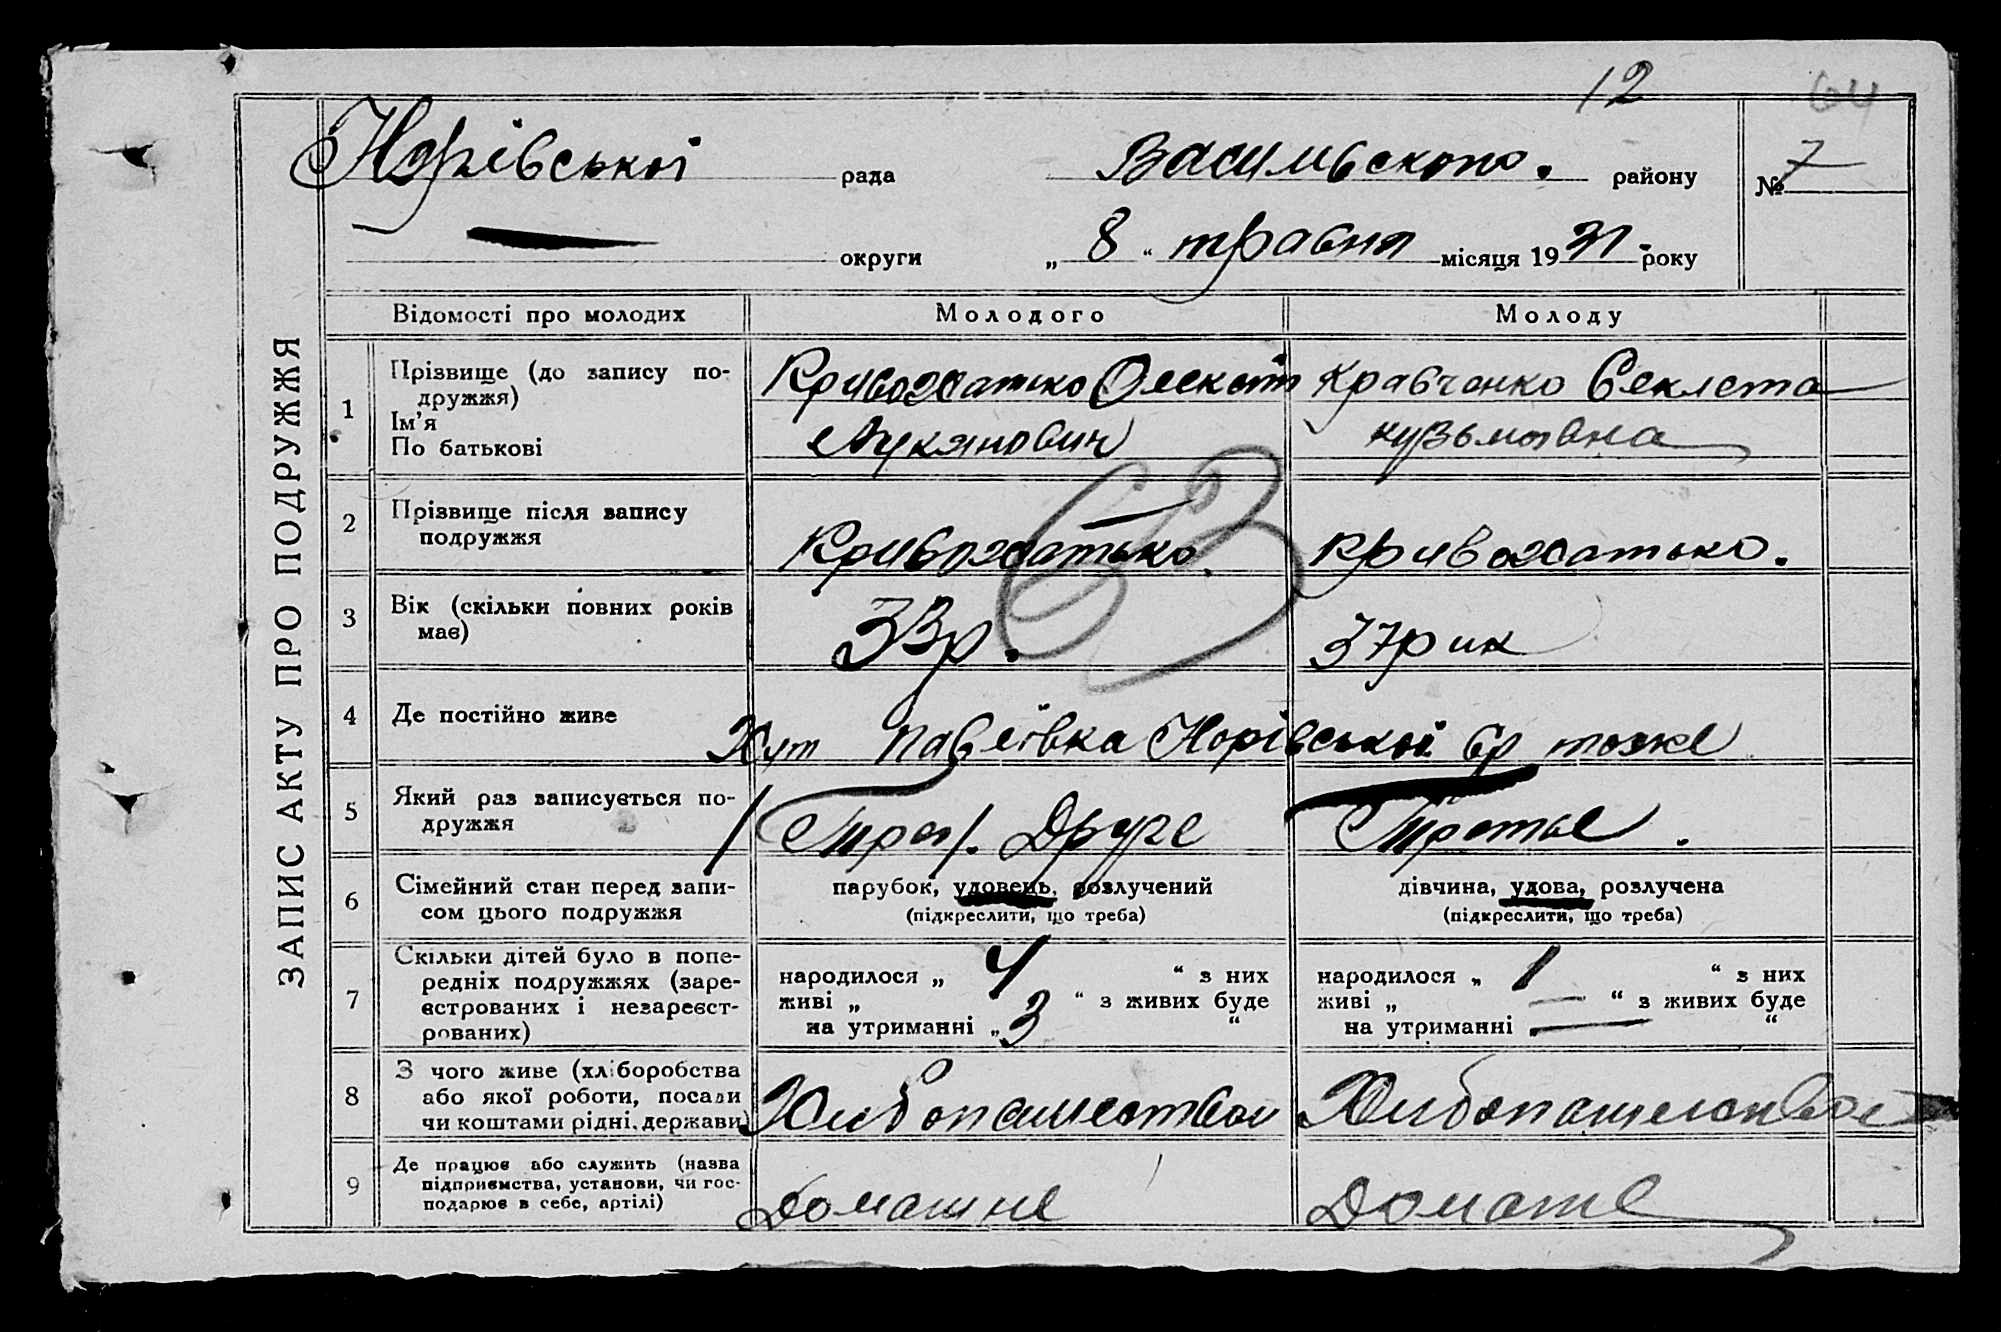 12 64
Норівської рада Васильського. району № 7
округи „ 8 “ травня місяця 1931 року
ЗАПИС АКТУ ПРО ПОДРУЖЖЯ
Відомості про молодих Молодого Молоду
1 Прізвище (до запису по-
дружжя)
Ім'я
По батькові
Кривохатько Олексій
Лукянович
Кравченко Секлета
кузьмовна
2 Прізвище після запису
подружжя
Кривохатько.
Кривохатько.
3 Вік (скільки повних років
має)
33р.
37рик
4 Де постійно живе
Хут Павлівка Норівської ср тоже
5 Який раз записується по-
дружжя
Друге
Третье.
6 Сімейний стан перед запи-
сом цього подружжя
парубок, удовець, розлучений
(підкреслити, що треба)
дівчина, удова, розлучена
(підкреслити, що треба)
7 Скільки дітей було в попе-
редніх подружжях (заре-
єстрованих і незареєст-
рованих)
народилося „ 4 “ з них
живі „ “ з живих буде
на утриманні „ 3 “
народилося „ 1 “ з них
живі „ — “ з живих буде
на утриманні „ — “
8 З чого живе (хліборобства
або якої роботи, посади
чи коштами рідні, держави)
9 Де працює або служить (назва
підприємства, установи, чи гос-
подарює в себе, артілі)
Домашне
63